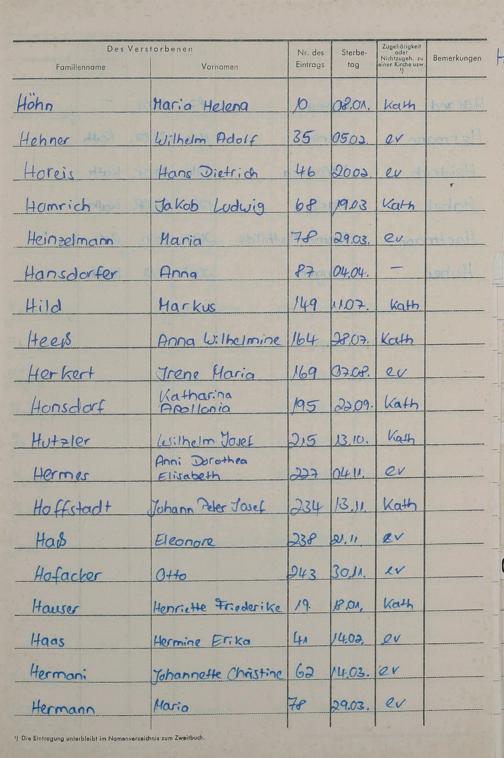 Des Verstorbenen
Familienname Vornamen Nr. des Eintrags Sterbetag Zugehörigkeit oder Nichtzugeh. zu einer Kirche usw. ¹) Bemerkungen
Höhn Maria Helena 10 08.01. Kath
Hehner Wilhelm Adolf 35 05.02. ev
Horeis Hans Dietrich 46 20.02. ev
Homrich Jakob Ludwig 68 19.03 Kath
Heinzelmann Maria 78 29.03. ev
Hansdorfer Anna 87 04.04. —
Hild Markus 149 11.07. Kath
Heeß Anna Wilhelmine 164 28.07. Kath
Herkert Irene Maria 169 07.08. ev
Honsdorf Katharina Apollonia 195 22.09. Kath
Hutzler Wilhelm Josef 215 13.10. Kath
Hermes Anni Dorothea Elisabeth 227 04.11. ev
Hoffstadt Johann Peter Josef 234 13.11. Kath
Haß Eleonore 238 21.11. ev
Hofacker Otto 243 30.11. ev
Hauser Henriette Friederike 19. 18.01. Kath
Haas Hermine Erika 41 14.02. ev
Hermani Johannette Christine 62 14.03. ev
Hermann Maria 78 29.03. ev
¹) Die Eintragung unterbleibt im Namenverzeichnis zum Zweitbuch.